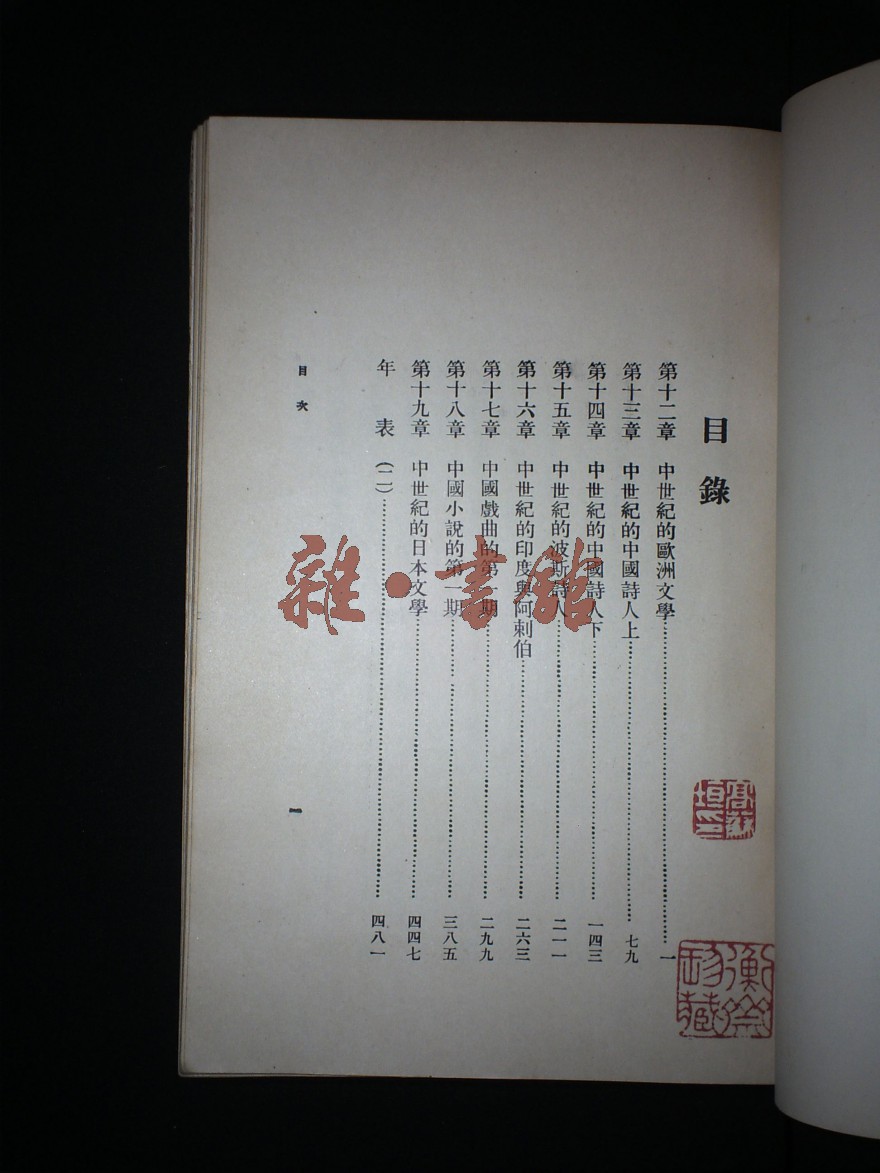 目錄
第十二章 中世紀的歐洲文學 一
第十三章 中世紀的中國詩人上 七九
第十四章 中世紀的中國詩人下 一四三
第十五章 中世紀的波斯詩人 二一一
第十六章 中世紀的印度與阿剌伯 二六三
第十七章 中國戲曲的第一期 二九九
第十八章 中國小說的第一期 三八五
第十九章 中世紀的日本文學 四四七
年表(二) 四八一
目次
一
雜·書館
高蘇垣印